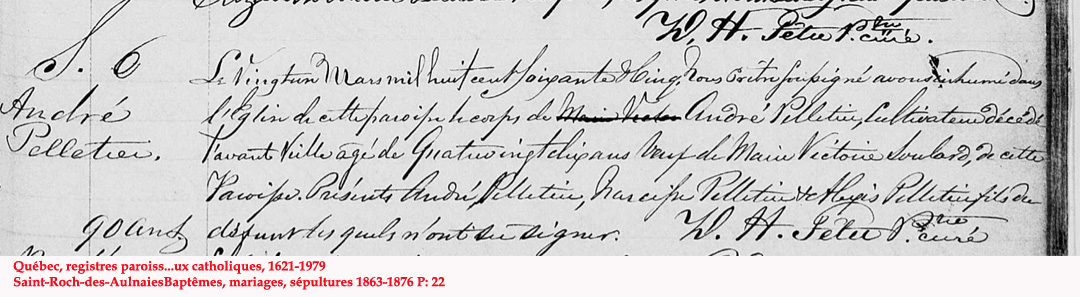 D. H. Têtu Ptre curé.
S. 6
André
Pelletier.
90 ans
Le Vingtun Mars mil huit cent soixante & cinq Nous Prêtre soussigné avons inhumé dans
l'Eglise de cette paroisse le corps de Marie Victoire André Pelletier, Cultivateur décédé
l'avant Veille agé de Quatrevingtdix ans Veuf de Marie Victoire Soulard, de cette
Paroisse. Présents André Pelletier, Narcisse Pelletier & Alexis Pelletier fils du
défunt lesquels n'ont su signer. D. H. Têtu Ptre curé
Québec, registres paroiss...ux catholiques, 1621-1979
Saint-Roch-des-AulnaiesBaptêmes, mariages, sépultures 1863-1876 P: 22